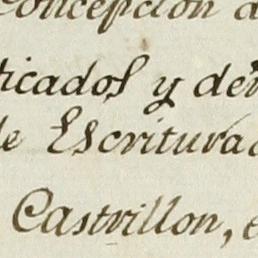 Concepcion d
ricados y de
de Escritura
Castrillon, e